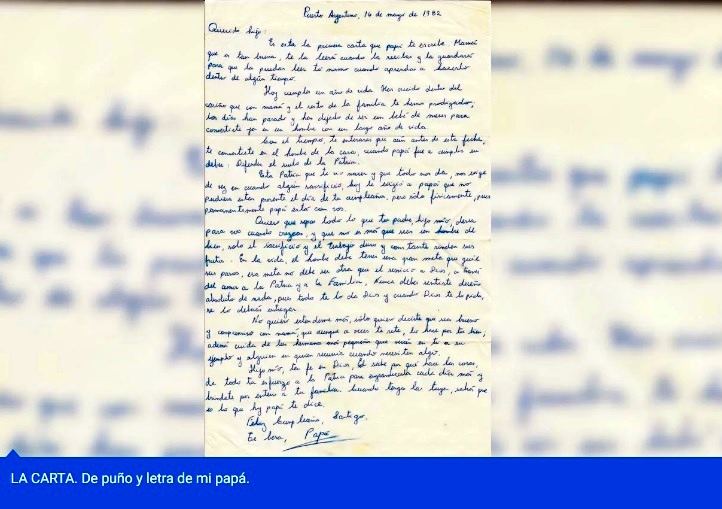 Puerto Argentino, 14 de mayo de 1982
Querido hijo:
Es esta la primera carta que papá te escribe. Mamá
que es tan buena, te la leerá cuando la recibas y la guardará
para que la puedas leer tú mismo cuando aprendas a hacerlo
dentro de algún tiempo.
Hoy cumples un año de vida. Has crecido dentro del
cariño que con mamá y el resto de la familia te hemos prodigado,
los días han pasado y has dejado de ser un bebé de meses para
convertirte ya en un hombre con un largo año de vida.
Con el tiempo, te enterarás que aún antes de esta fecha,
te convertiste en el hombre de la casa, cuando papá fue a cumplir su
deber. Defender el suelo de la Patria.
Esta Patria que te vio nacer y que todo nos da, nos exige
de vez en cuando algún sacrificio, hoy le exigió a papá que no
pudiera estar presente el día de tu cumpleaños, pero sólo físicamente, pues
permanentemente papá está con vos.
Quiero que sepas todo lo que tu padre, hijo mío, desea
para vos cuando crezcas, y que no es más que seas un hombre de
bien, sólo el sacrificio y el trabajo duro y constante rinden sus
frutos. En la vida, el hombre debe tener una gran meta que guíe
sus pasos, esa meta no debe ser otra que el servicio a Dios, a través
del amor a la Patria y a la Familia. Nunca debes sentirte dueño
absoluto de nada, pues todo te lo da Dios y cuando Dios te lo pida,
se lo deberás entregar.
No quiero extenderme más, sólo quiero decirte que seas bueno
y compinche con mamá, que aunque a veces te rete, lo hace por tu bien,
además cuida de tus hermanos más pequeños que verán en ti a su
ejemplo y alguien en quien recurrir cuando necesiten algo.
Hijo mío, ten fe en Dios, Él sabe por qué hace las cosas,
da todo tu esfuerzo a la Patria para engrandecerla cada día más y
bríndate por entero a tu familia. Cuando tengas la tuya, sabrás que
es lo que hoy papá te dice.
Feliz Cumpleaños, Santiago.
Te besa, Papá
LA CARTA. De puño y letra de mi papá.